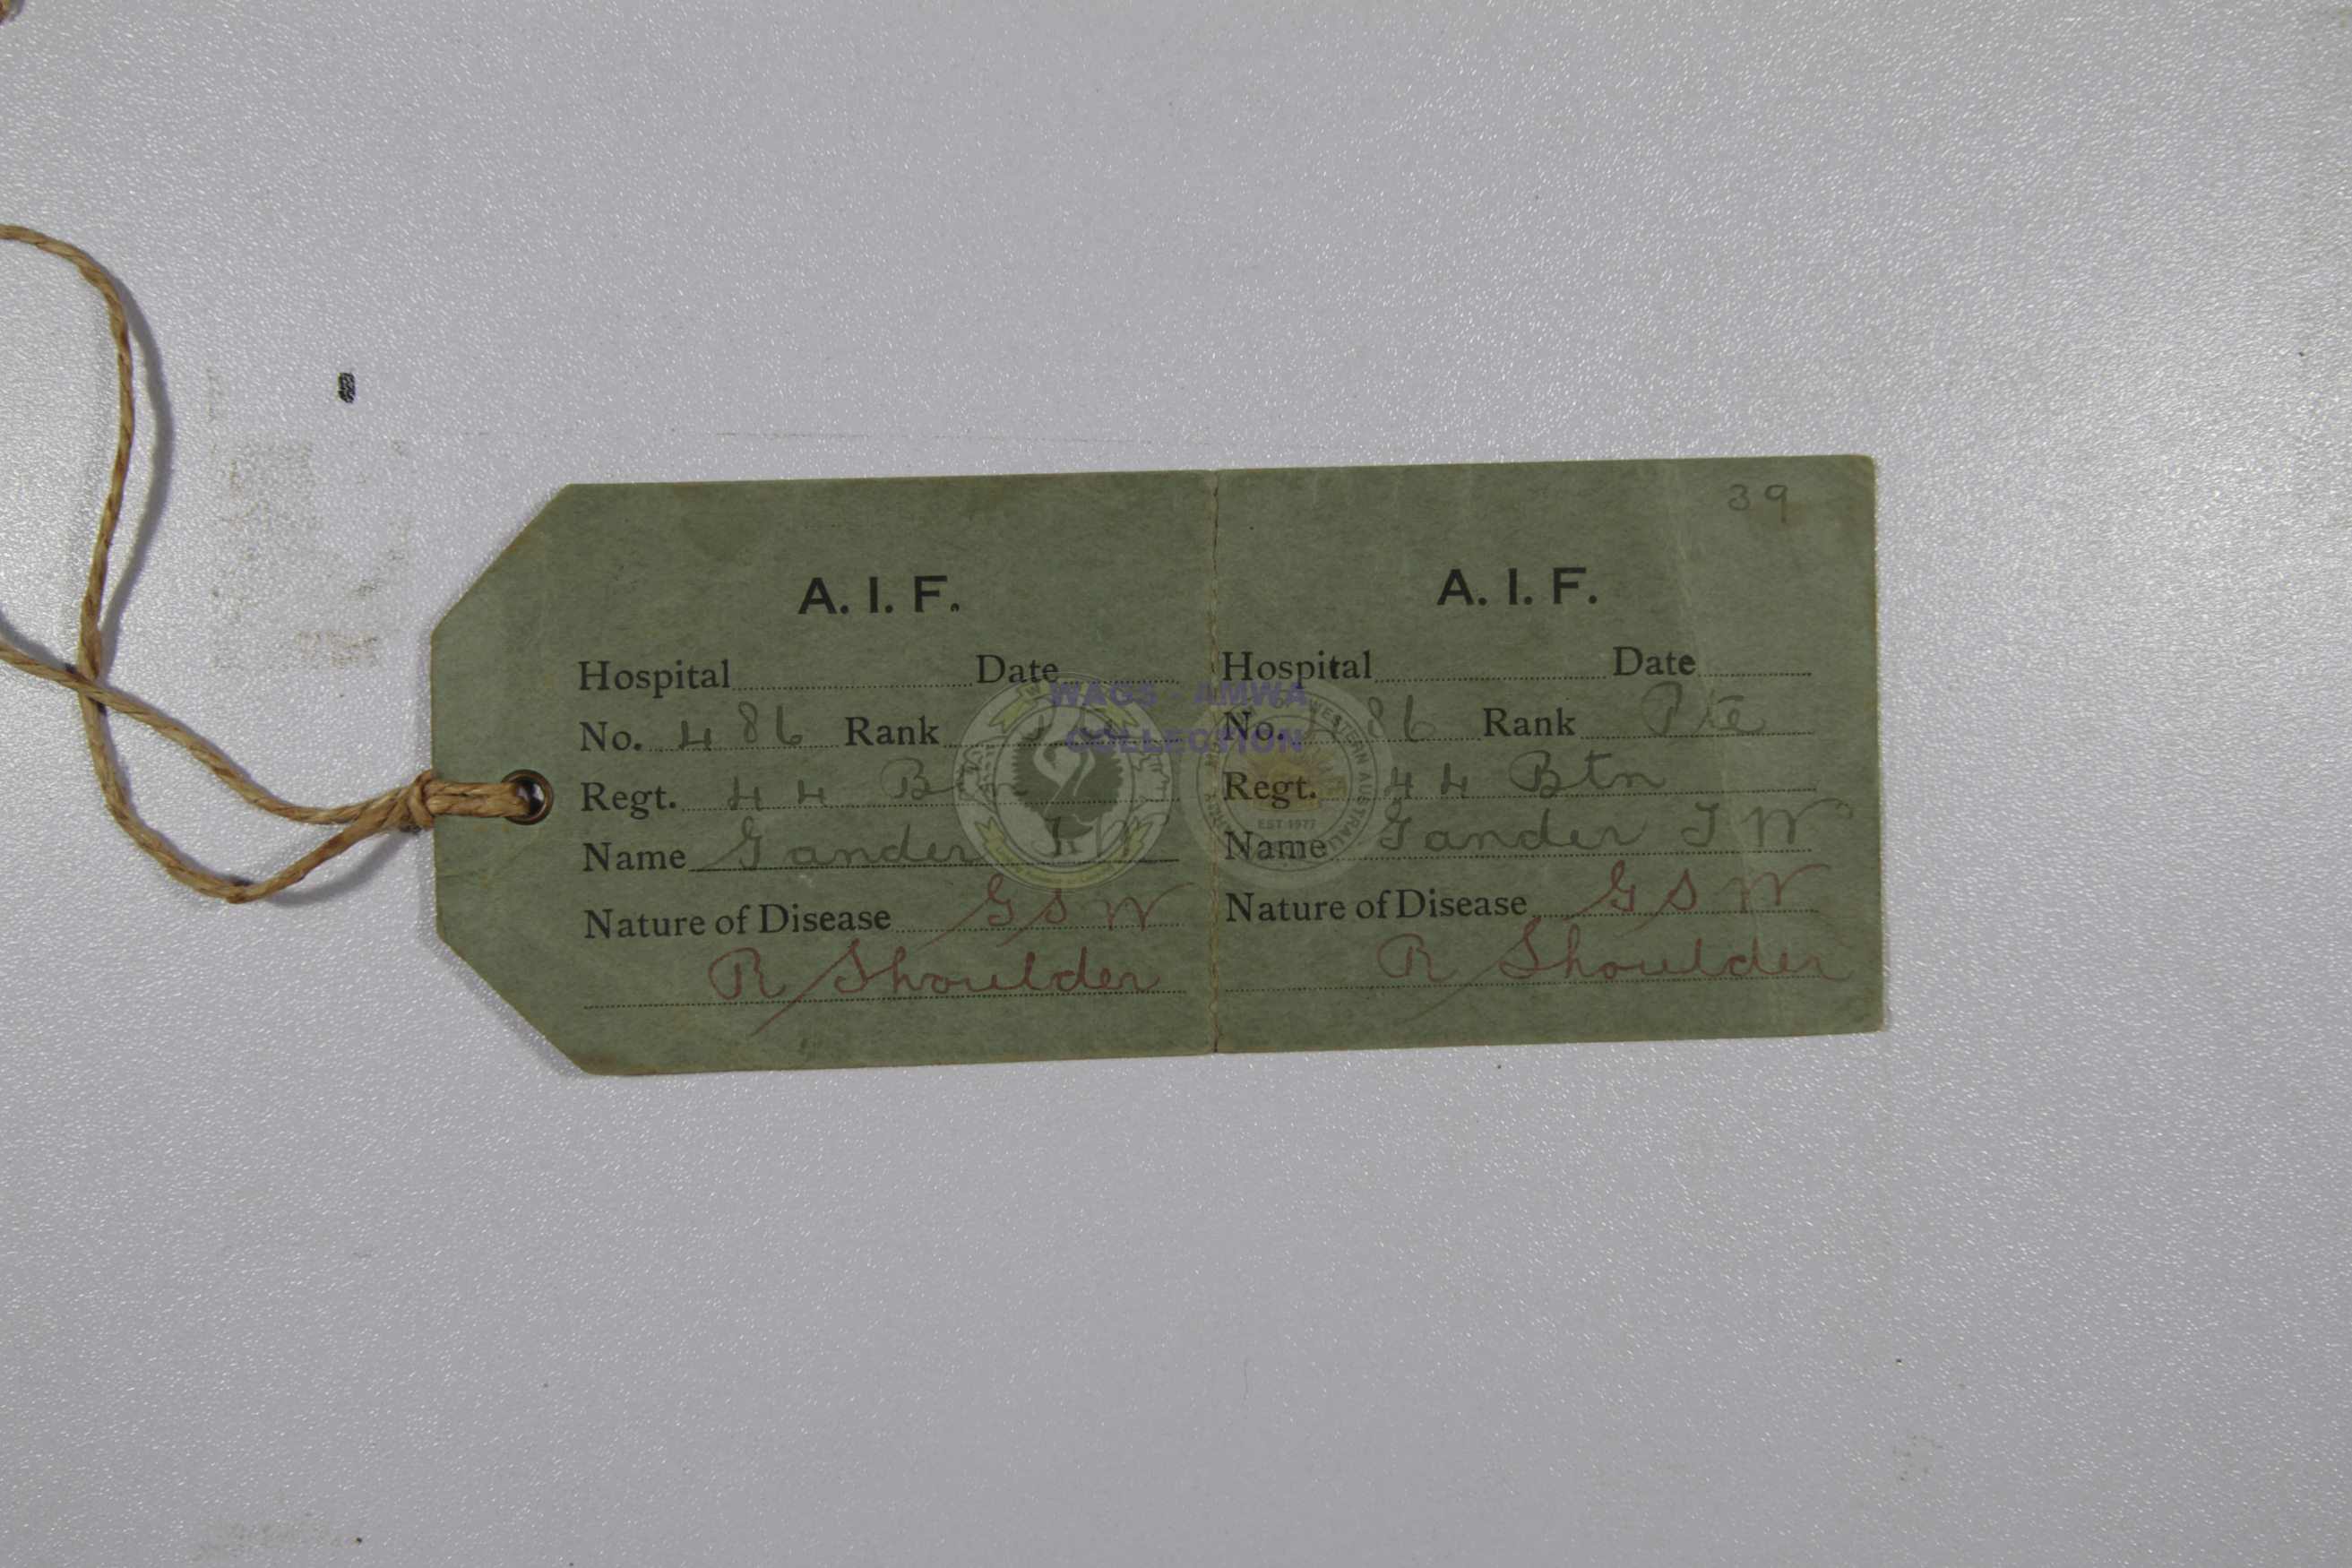 39
A. I. F.
Hospital Date
No. 486 Rank
Regt. 44 Btn
Name Gander J W
Nature of Disease G S W
R Shoulder
A. I. F.
Hospital Date
No. 486 Rank Pte
Regt. 44 Btn
Name Gander J W
Nature of Disease G S W
R Shoulder
WAGS - AMWA
COLLECTION
WESTERN AUSTRALIA
EST 1977